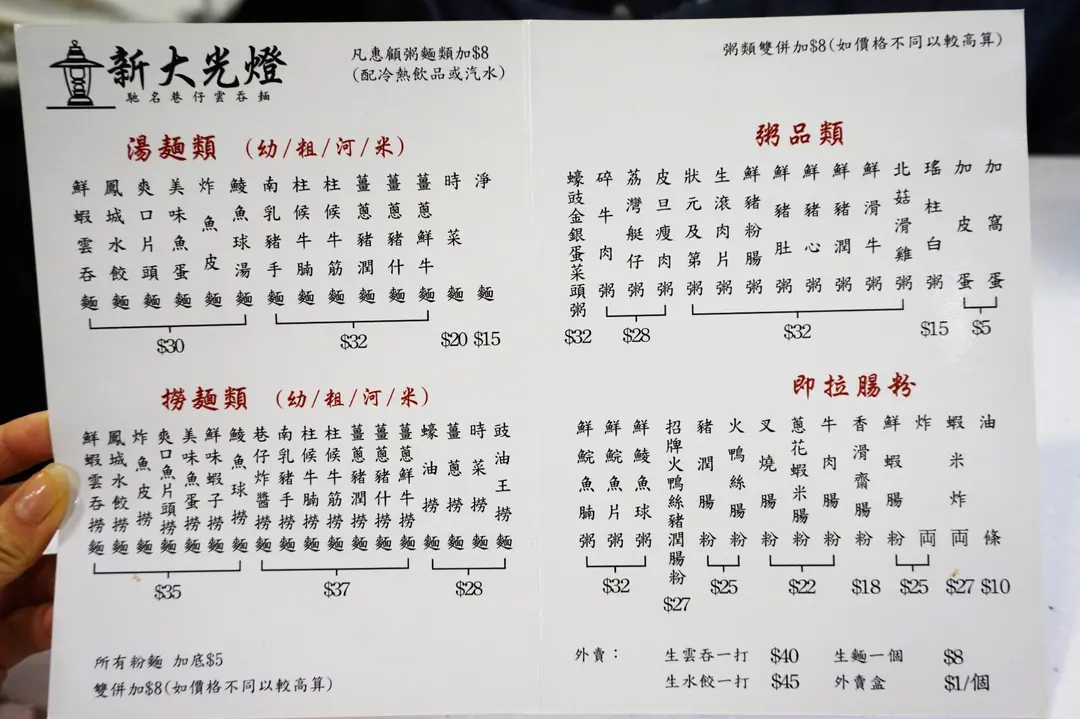 新大光燈
馳名巷仔雲吞麵
凡惠顧粥麵類加$8
(配冷熱飲品或汽水)
湯麵類 (幼/粗/河/米)
鮮蝦雲吞麵
鳳城水餃麵
爽口片頭麵
美味魚蛋麵
炸魚皮麵
鯪魚球湯麵
$30
南乳豬手麵
柱候牛腩麵
柱候牛筋麵
薑蔥豬潤麵
薑蔥豬什麵
薑蔥鮮牛麵
$32
時菜麵
$20
淨麵
$15
撈麵類 (幼/粗/河/米)
鮮蝦雲吞撈麵
鳳城水餃撈麵
炸魚皮撈麵
爽口魚片頭撈麵
美味魚蛋撈麵
鮮味蝦子撈麵
鯪魚球撈麵
$35
巷仔炸醬撈麵
南乳豬手撈麵
柱候牛腩撈麵
柱候牛筋撈麵
薑蔥豬潤撈麵
薑蔥豬什撈麵
薑蔥鮮牛撈麵
$37
蠔油撈麵
薑蔥撈麵
時菜撈麵
豉油王撈麵
$28
所有粉麵 加底$5
雙併加$8(如價格不同以較高算)
粥類雙併加$8(如價格不同以較高算)
粥品類
蠔豉金銀蛋菜頭粥
$32
碎牛肉粥
荔灣艇仔粥
皮旦瘦肉粥
$28
狀元及第粥
生滾肉片粥
鮮豬粉腸粥
鮮豬肚粥
鮮豬心粥
鮮豬潤粥
鮮滑牛粥
北菇滑雞粥
$32
瑤柱白粥
$15
加皮蛋
加窩蛋
$5
即拉腸粉
鮮鯇魚腩粥
鮮鯇魚片粥
鮮鯪魚球粥
$32
招牌火鴨絲豬潤腸粉
$27
豬潤腸粉
火鴨絲腸粉
$25
叉燒腸粉
蔥花蝦米腸粉
牛肉腸粉
$22
香滑齋腸粉
$18
鮮蝦腸粉
炸両
$25
蝦米炸両
$27
油條
$10
外賣：
生雲吞一打 $40 生麵一個 $8
生水餃一打 $45 外賣盒 $1/個